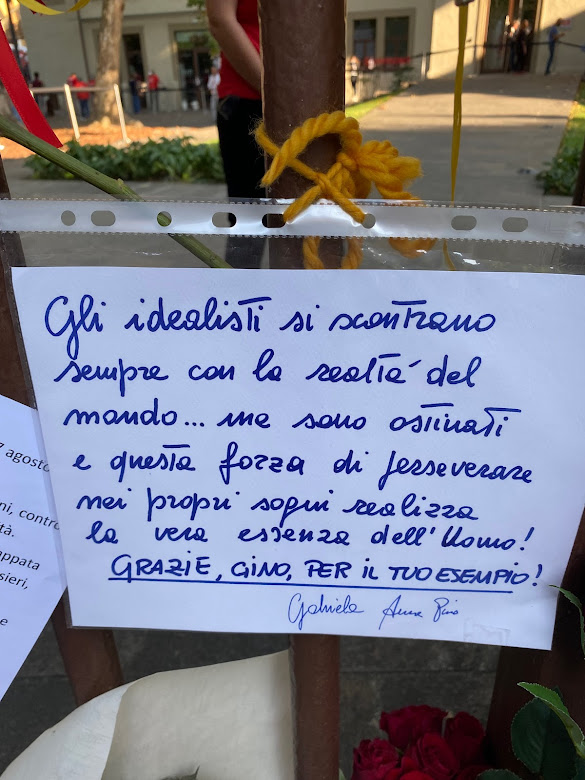 Gli idealisti si scontrano
sempre con la realtà del
mondo... ma sono ostinati
e questa forza di perseverare
nei propri sogni realizza
la vera essenza dell'Uomo!
GRAZIE, GINO, PER IL TUO ESEMPIO!
Gabriela Anna
agosto
ni, contro
tà.
appata
sieri,
e